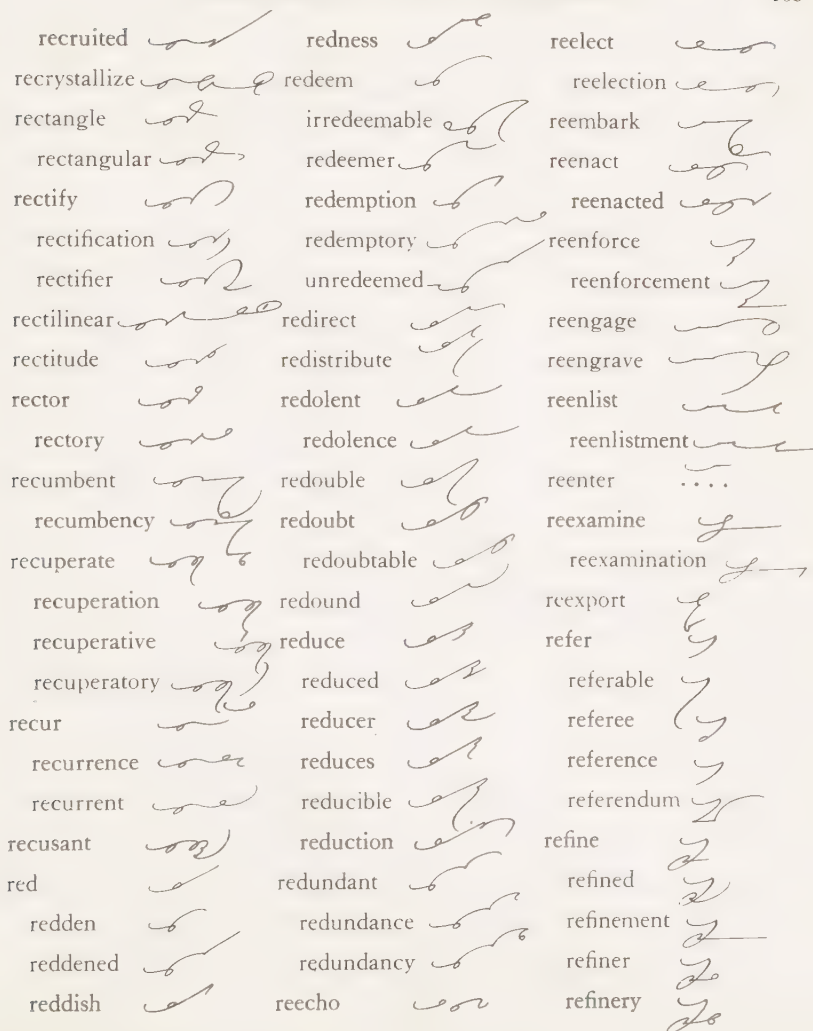 recruited
recrystallize
rectangle
rectangular
rectify
rectification
rectifier
rectilinear
rectitude
rector
rectory
recumbent
recumbency
recuperate
recuperation
recuperative
recuperatory
recur
recurrence
recurrent
recusant
red
redden
reddened
reddish
redness
redeem
irredeemable
redeemer
redemption
redemptory
unredeemed
redirect
redistribute
redolent
redolence
redouble
redoubt
redoubtable
redound
reduce
reduced
reducer
reduces
reducible
reduction
redundant
redundance
redundancy
reecho
reelect
reelection
reembark
reenact
reenacted
reenforce
reenforcement
reengage
reengrave
reenlist
reenlistment
reenter
reexamine
reexamination
reexport
refer
referable
referee
reference
referendum
refine
refined
refinement
refiner
refinery